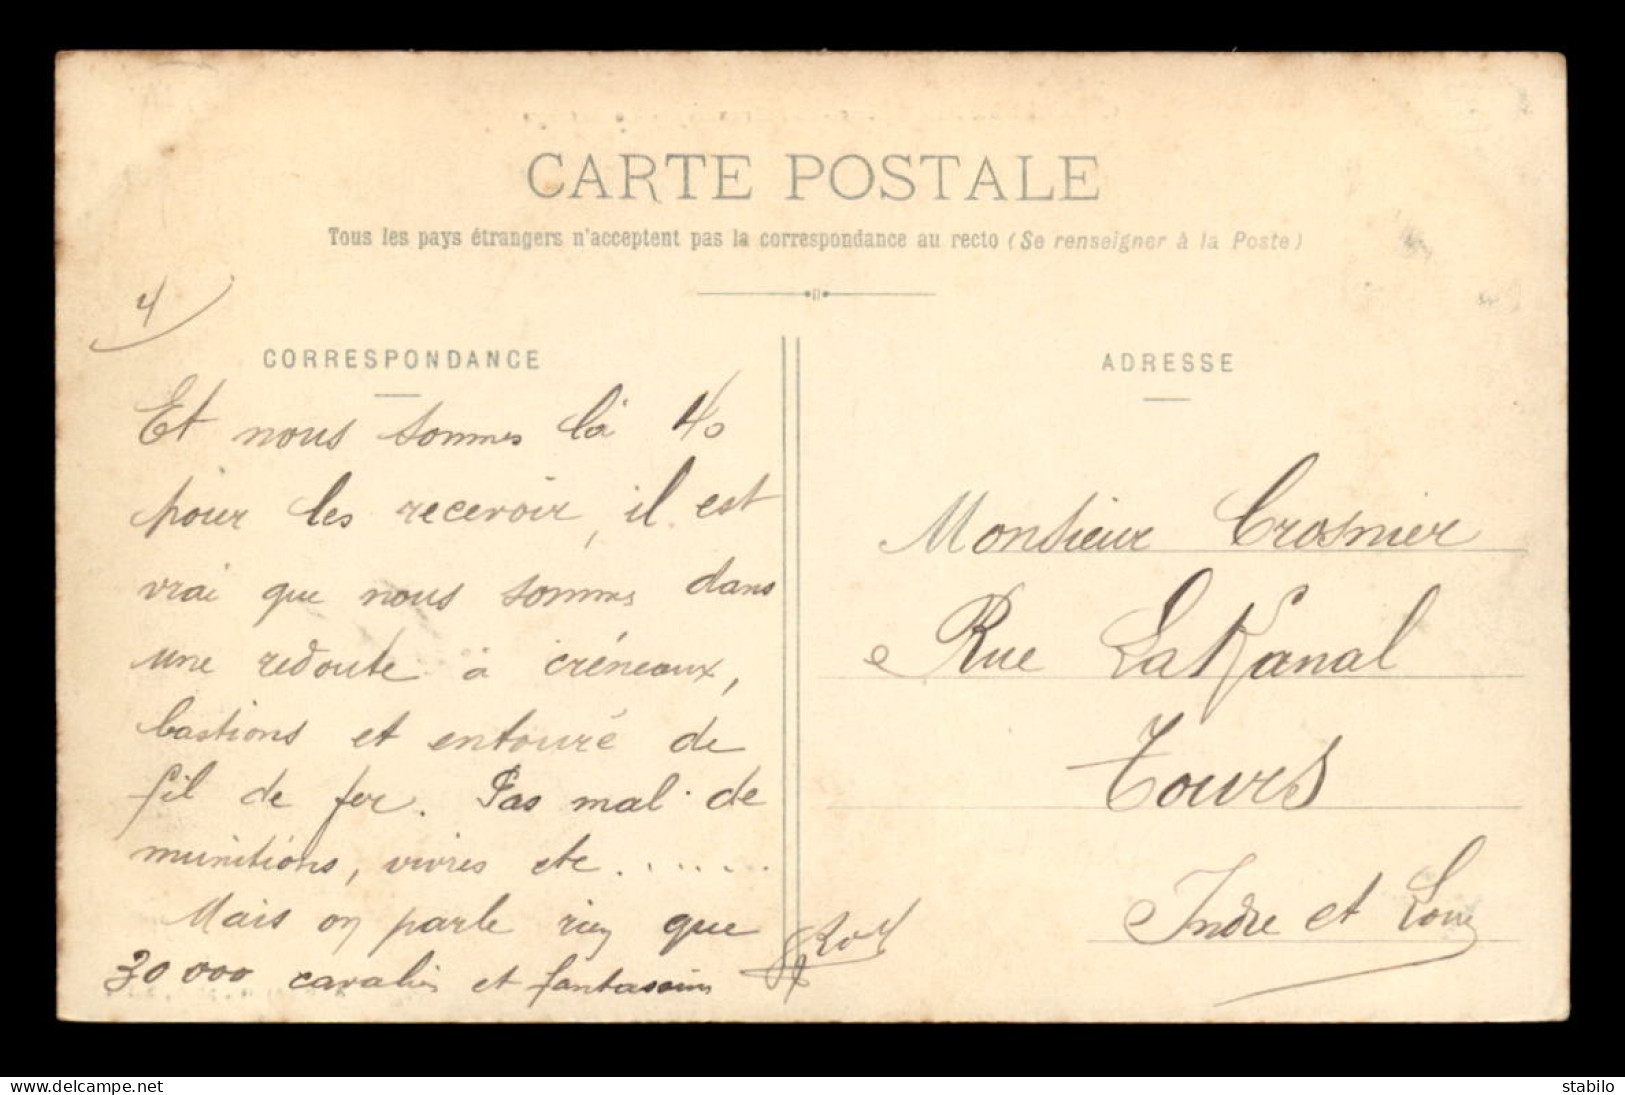 CARTE POSTALE
Tous les pays étrangers n'acceptent pas la correspondance au recto (Se renseigner à la Poste)
4
CORRESPONDANCE
Et nous sommes là 40
pour les recevoir, il est
vrai que nous sommes dans
une redoute à créneaux,
bastions et entouré de
fil de fer. Pas mal de
munitions, vivres etc.......
Mais on parle rien que
30 000 cavaliers et fantassins
ADRESSE
Monsieur Crosnier
Rue LaKanal
Tours
Indre et Loire
www.delcampe.net
stabilo